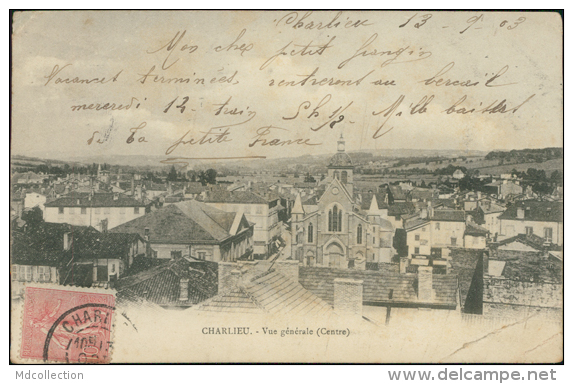 Charlieu 13-9-03
Mon cher petit frangin
Vacances terminées, rentreront au bercail
mercredi 12, train 5h 1/2. Mille baisers
de ta petite France
CHARLIEU. - Vue générale (Centre)
CHAR
Mdcollection
www.delcampe.net